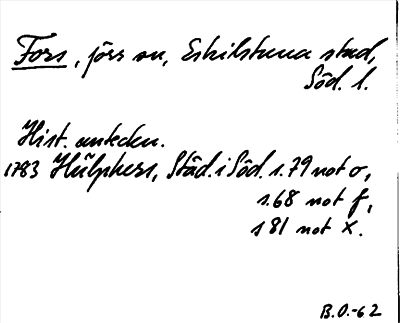 Fors, förs sn, Eskilstuna stad,
Söd. l.
Hist. anteckn.
1783 Hülphers, Städ. i Söd. s. 79 not o,
s. 68 not f,
s 81 not x.
B.O.-62